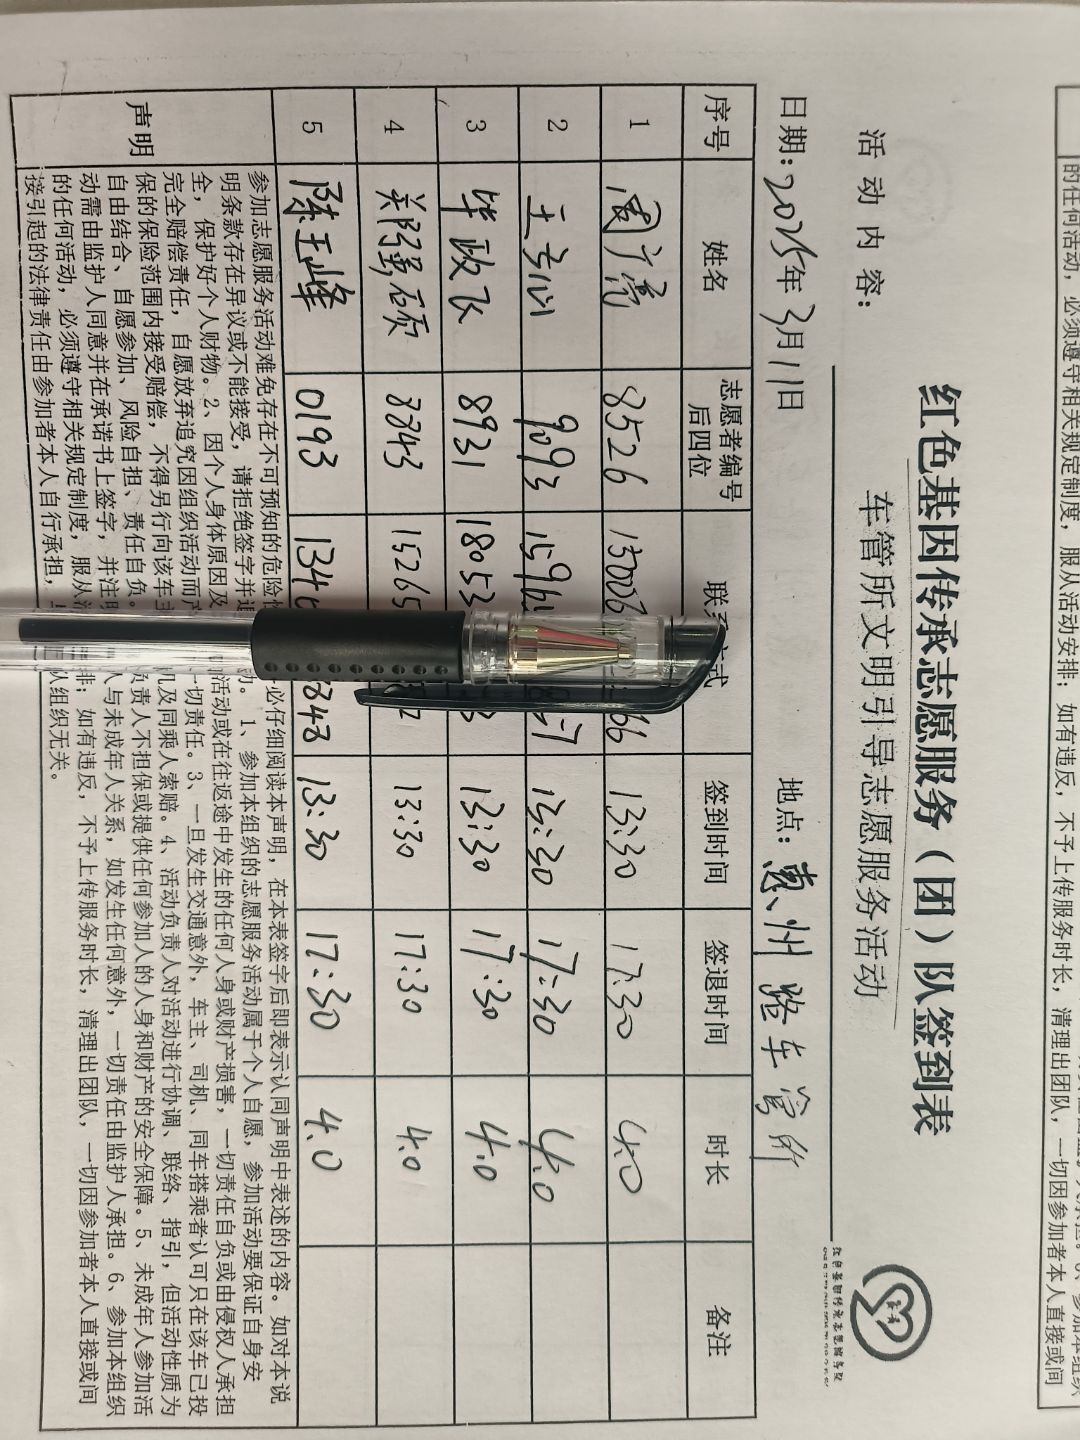 红色基因传承志愿服务（团）队签到表
活动内容： 车管所文明引导志愿服务活动
日期：2025年3月11日 地点：惠州路车管所
序号 姓名 志愿者编号后四位 联系方式 签到时间 签退时间 时长 备注
1 8526 13006 66 13:30 17:30 4.0
2 9093 1596 13:30 17:30 4.0
3 毕政飞 8931 18053 13:30 17:30 4.0
4 8843 15265 2 13:30 17:30 4.0
5 陈玉峰 0193 134 13:30 17:30 4.0
声明
参加志愿服务活动难免存在不可预知的危险 必仔细阅读本声明，在本表签字后即表示认同声明中表述的内容。如对本说
明条款存在异议或不能接受，请拒绝签字并 动。1、参加本组织的志愿服务活动属于个人自愿，参加活动要保证自身安
全，保护好个人财物。2、因个人身体原因及 活动或在往返途中发生的任何人身或财产损害，一切责任自负或由侵权人承担
完全赔偿责任，自愿放弃追究因组织活动而 一切责任。3、一旦发生交通意外，车主、司机、同车搭乘者认可只在该车已投
保的保险范围内接受赔偿，不得另行向该车主 机及同乘人索赔。4、活动负责人对活动进行协调、联络、指引，但活动性质为
自由结合、自愿参加、风险自担、责任自负。 负责人不担保或提供任何参加人的人身和财产的安全保障。5、未成年人参加活
动需由监护人同意并在承诺书上签字，并注明 人与未成年人关系，如发生任何意外，一切责任由监护人承担。6、参加本组织
的任何活动，必须遵守相关规定制度，服从活 排；如有违反，不予上传服务时长，清理出团队，一切因参加者本人直接或间
接引起的法律责任由参加者本人自行承担， 队组织无关。
的任何活动，必须遵守相关规定制度，服从活动安排；如有违反，不予上传服务时长，清理出团队，一切因参加者本人直接或间